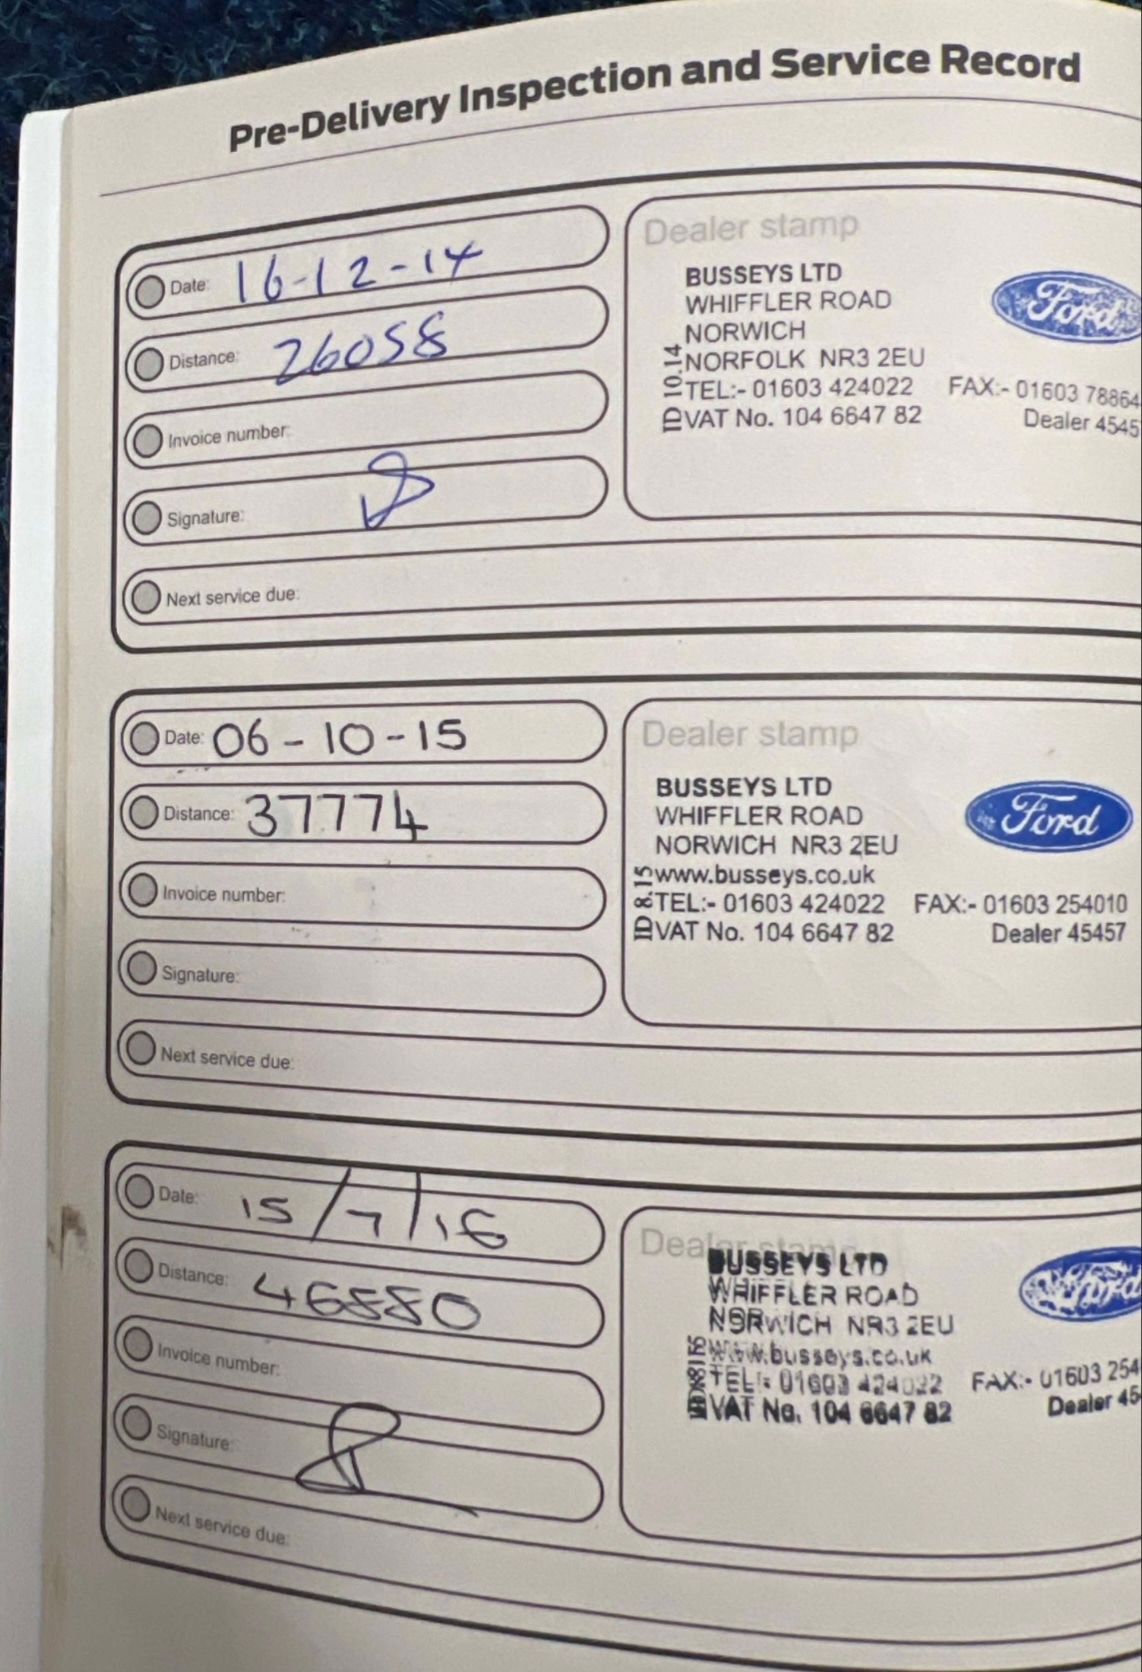 Pre-Delivery Inspection and Service Record
Date: 16-12-14
Distance: 26058
Invoice number:
Signature:
Next service due:
Dealer stamp
BUSSEYS LTD
WHIFFLER ROAD
NORWICH
NORFOLK NR3 2EU
TEL:- 01603 424022 FAX:- 01603 78864
VAT No. 104 6647 82 Dealer 4545
ID 10.14
Ford
Date: 06-10-15
Distance: 37774
Invoice number:
Signature:
Next service due:
Dealer stamp
BUSSEYS LTD
WHIFFLER ROAD
NORWICH NR3 2EU
www.busseys.co.uk
TEL:- 01603 424022 FAX:- 01603 254010
VAT No. 104 6647 82 Dealer 45457
ID 8.15
Ford
Date: 15/7/16
Distance: 46880
Invoice number:
Signature:
Next service due:
Dealer stamp
BUSSEYS LTD
WHIFFLER ROAD
NORWICH NR3 2EU
www.busseys.co.uk
TEL:- 01603 424022 FAX:- 01603 254
VAT No. 104 6647 82 Dealer 45
Ford